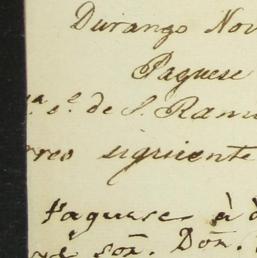 Durango Nov
Paguese
de S. Ram
rreo siguiente
Paguese à d
son. Don.